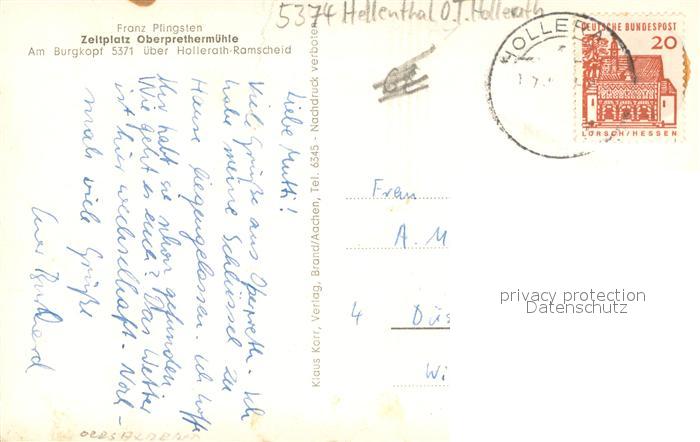 5374 Hellenthal O.T. Hollerath
Franz Pfingsten
Zeltplatz Oberprethermühle
Am Burgkopf 5371 über Hollerath-Ramscheid
HOLLERA
DEUTSCHE BUNDESPOST
20
LORSCH/HESSEN
Liebe Mutti!
Viele Grüße aus Oberpreth. Ich
habe meine Schlüssel zu
Hause liegengelassen. Ich hoffe
Ihr habt sie schon gefunden.
Wie geht es euch? Das Wetter
ist hier wechselhaft. Noch-
mals viele Grüße
Euer
Klaus Karr, Verlag, Brand/Aachen, Tel. 6345 - Nachdruck verboten
Frau
A. M
4 Düs
Wi
privacy protection
Datenschutz